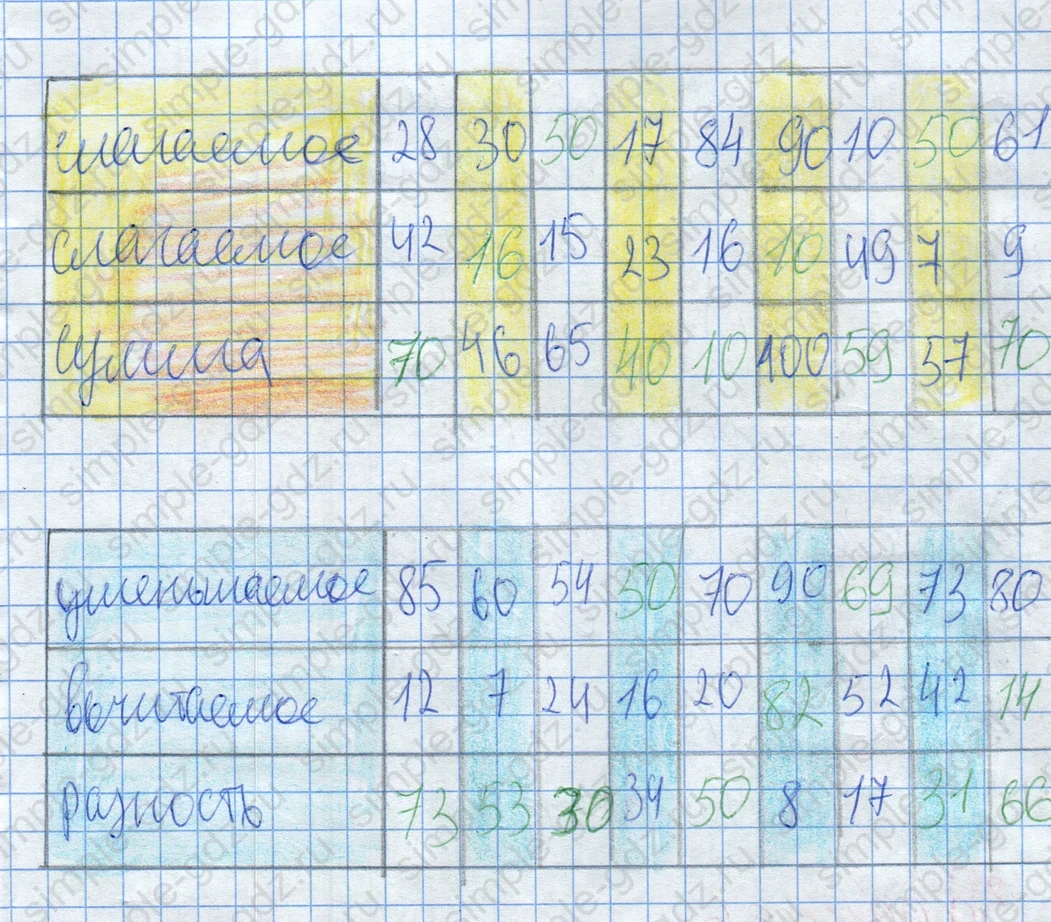 слагаемое 28 30 50 17 84 90 10 50 61
слагаемое 42 16 15 23 16 10 49 7 9
сумма 70 46 65 40 10 100 59 57 70
уменьшаемое 85 60 54 50 70 90 69 73 80
вычитаемое 12 7 24 16 20 82 52 42 14
разность 73 53 30 34 50 8 17 31 66
simple-gdz.ru